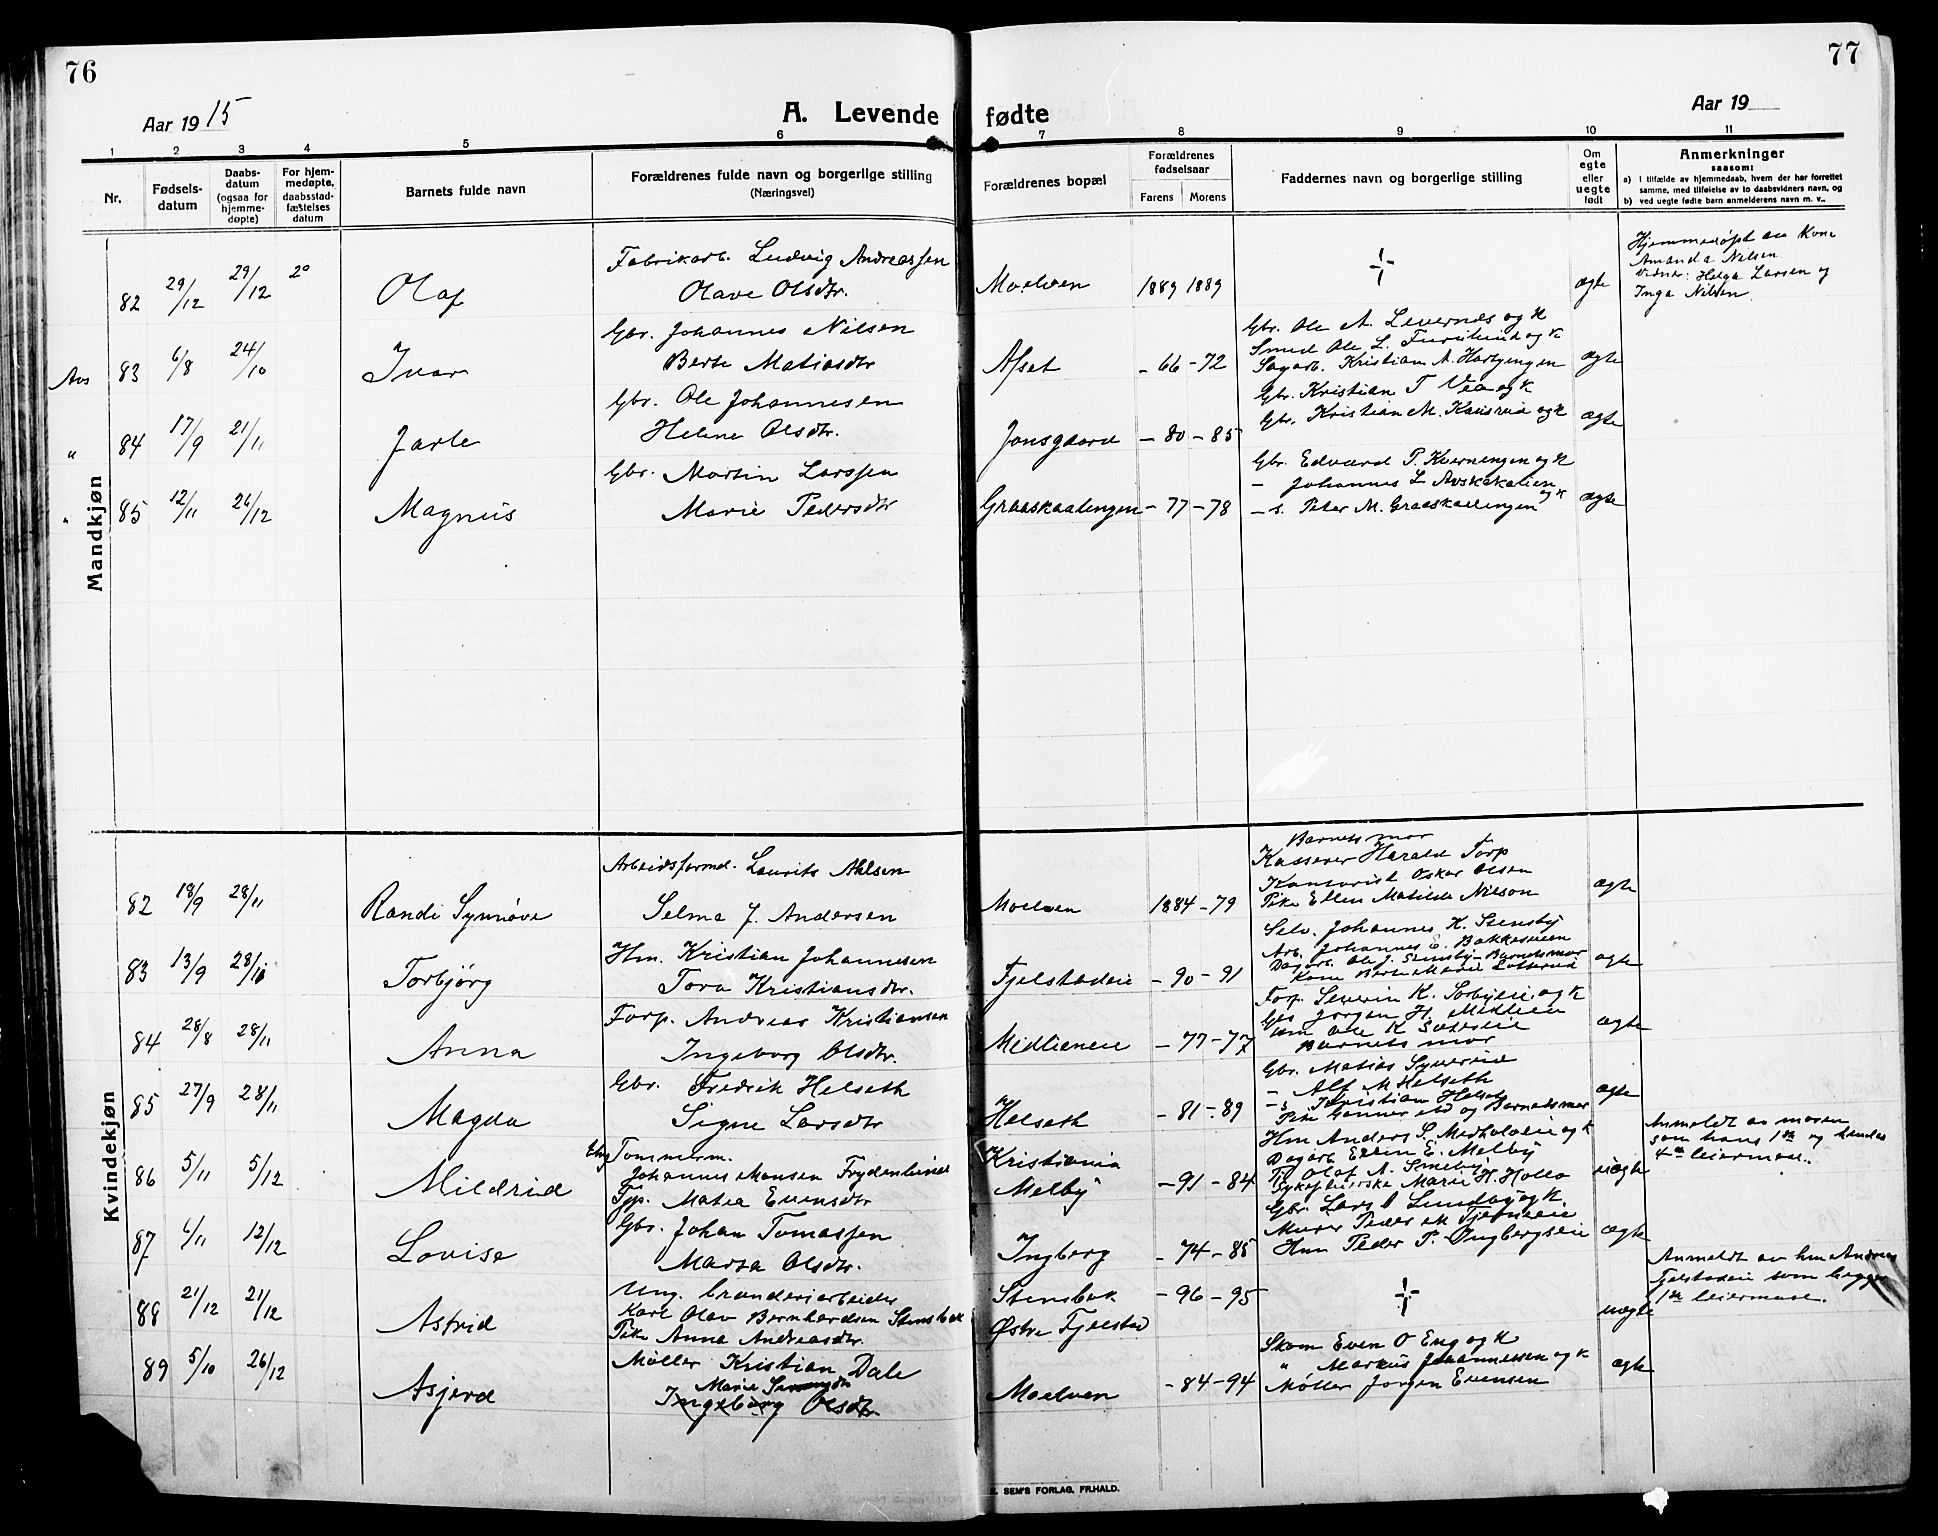 76
77
Aar 1915
A. Levende fødte
Aar 19
1 2 3 4 5 6 7 8 9 10 11
Nr.
Fødsels-
datum
Daabs-
datum
(ogsaa for
hjemme-
døpte)
For hjem-
medøpte,
daabsstad-
fæstelses
datum
Barnets fulde navn
Forældrenes fulde navn og borgerlige stilling
(Næringsvei)
Forældrenes bopæl
Forældrenes
fødselsaar
Farens Morens
Faddernes navn og borgerlige stilling
Om
egte
eller
uegte
født
Anmerkninger
saasom:
a) I tilfælde av hjemmedaab, hvem der har forrettet
samme, med tilføielse av to daabsvidners navn, og
b) ved uegte fødte barn anmelderens navn m. v.
Mandkjøn
82 29/12 29/12 2° Olaf
Fabrikarb. Ludvig Andreassen
Olave Olsdtr.
Moelven 1889 1889
ægte
Hjemmedøpt av Kone
Amanda Nilsen
Vidner: Helga Larsen og
Inga Nilsen
Avs 83 6/8 24/10 Ivar
Gbr. Johannes Nilsen
Berte Matiasdtr
Afset - 66 - 72
Gbr. Ole A. Levernæs og K
Smed Ole L. Furulund og K
Sagarb. Kristian A. Hartjengen
ægte
" 84 17/9 21/11 Jarle
Gbr. Ole Johannesen
Helene Olsdtr.
Jonsgaard - 80 - 85
Gbr. Kristian T Vea og K
Gbr. Kristian M. Kausrud og K
ægte
" 85 12/11 26/12 Magnus
Gbr. Martin Larssen
Marie Pedersdtr
Graaskaalengen - 77 - 78
Gbr. Edvard P. Kvernengen og K
- Johannes L Avskakalien og K
- s. Peter M. Graaskaelengen
ægte
Kvindekjøn
82 18/9 28/11 Randi Synnøve
Arbeidsformd. Laurits Ahlsen
Selma J. Andersen
Moelven 1884 - 79
Barnets mor
Kasserer Harald Torp
Kontorist Oskar Olsen
Pike Ellen Matilde Nilson
ægte
83 13/9 28/11 Torbjørg
Hm. Kristian Johannesen
Tora Kristiansdtr.
Fjelstadeie - 90 - 91
Selv. Johannes K. Stensby
Arb. Johannes E. Bakkesveen
Dagarb. Ole J. Stensby - Barnets mor
Kone Berte Marie
ægte
84 28/8 28/11 Anna
Forp. Andreas Kristiansen
Ingeborg Olsdtr.
Midtieneie - 77 - 77
Forp. Severin K. Sorbyeie og K
Gbr Jørgen H. Midtlien
Hm Ole K
Barnets mor
ægte
85 27/9 28/11 Magda
Gbr. Fredrik Helseth
Signe Larsdtr
Helseth - 81 - 89
Gbr. Matias Syverud
- Alf M Helseth
- s Kristian Helseth
Pike Gunner og Barnets mor
ægte
86 5/11 5/12 Mildrid
Ung Tømmerm.
Johannes Hansen Frydenlund
Tjp. Matea Evensdtr
Kristiania
Melby
- 91 - 84
Hm Anders S. Medholoeie og K
Dagarb Edvin E. Melby
Tj Olaf A. Smeby
Sykepleierske Marie H. Holla
uægte
Anmeldt av moren
som hans 1ste og hendes
4de leiermaal.
87 6/11 12/12 Lovise
Gbr. Johan Tomassen
Marta Olsdtr.
Ingberg - 74 - 85
Gbr. Lars O Lundby og K.
Murer Peder M Tjerneeie
Hm Peder P. Ingbergseie
ægte
88 21/12 21/12 Astrid
Ung. brænderiarbeider
Karl Olav Bernhardsen Stensbak
Pike Anna Andreasdtr.
Stensbak
Østre Fjelstad
- 96 - 95
uægte
Anmeldt av hm Andreas
Fjelstadeie som begges
1ste leiermaal.
89 5/10 26/12 Asjerd
Møller Kristian Dale
Marie
Ingeborg Olsdtr.
Moelven - 84 - 94
Skom Even O Eng og K
" Markus Johannessen og K
Møller Jørgen Evensen
ægte
SEM'S FORLAG, FR.HALD.